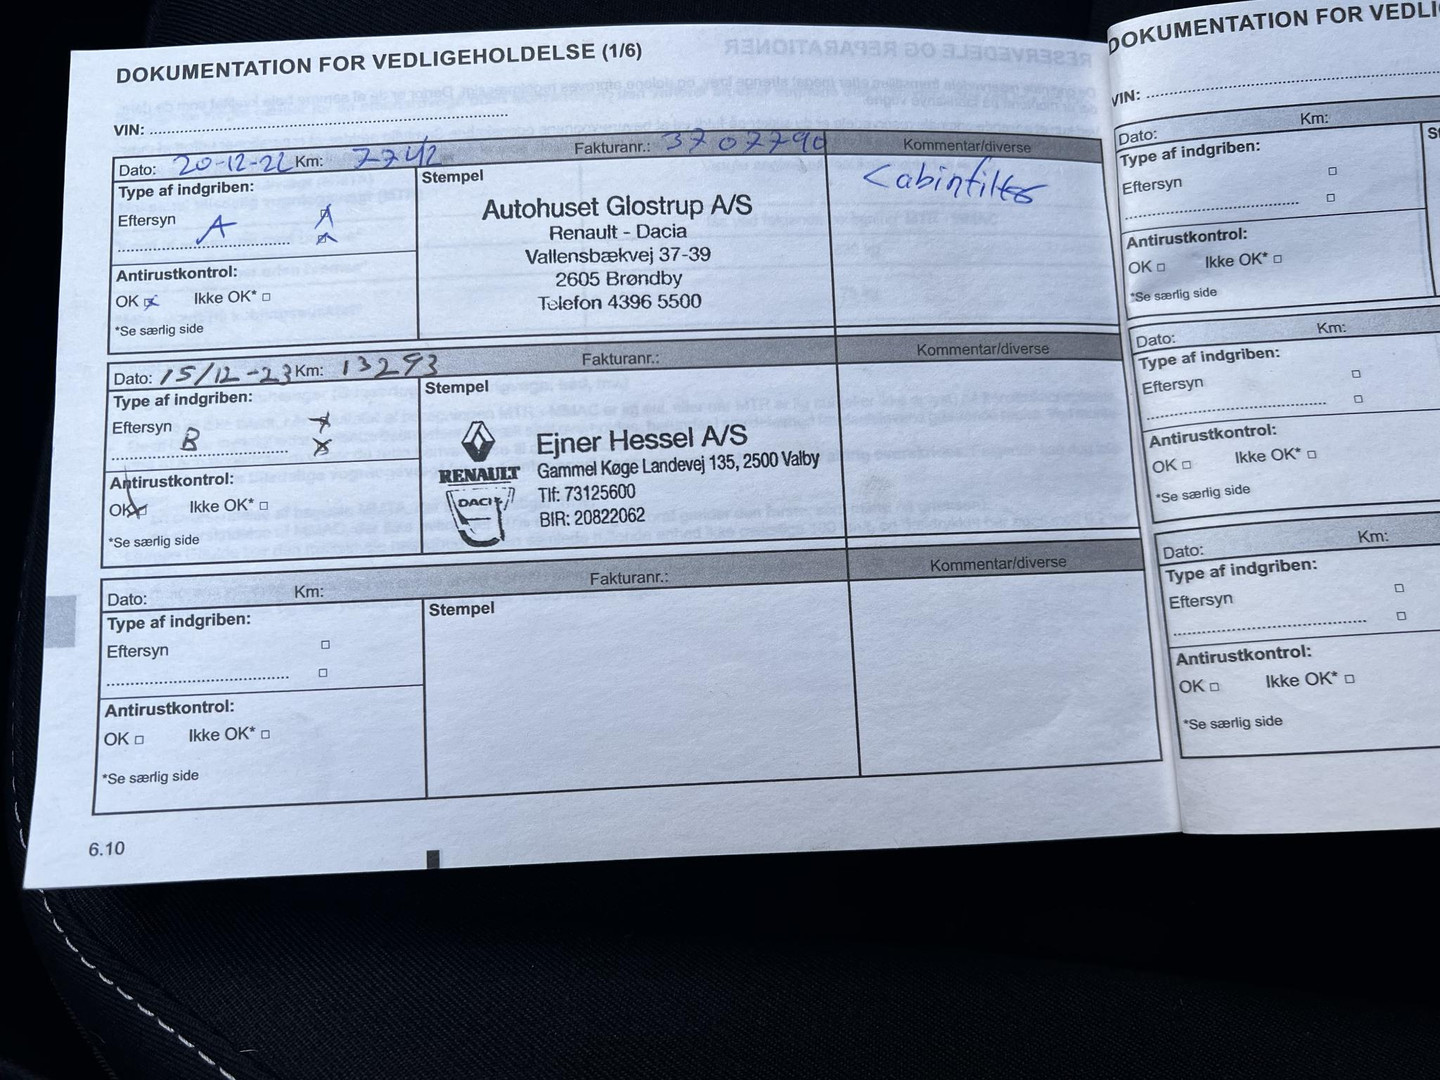 DOKUMENTATION FOR VEDLIGEHOLDELSE (1/6)
VIN:
Dato: 20-12-22 Km: 7742 Fakturanr.: 3707790 Kommentar/diverse
Type af indgriben:
Stempel
Cabinfilter
Eftersyn A
Autohuset Glostrup A/S
Renault - Dacia
Vallensbækvej 37-39
2605 Brøndby
Telefon 4396 5500
Antirustkontrol:
OK Ikke OK*
*Se særlig side
Dato: 15/12-23 Km: 13293 Fakturanr.: Kommentar/diverse
Type af indgriben:
Stempel
Eftersyn
B
RENAULT
DACIA
Ejner Hessel A/S
Gammel Køge Landevej 135, 2500 Valby
Tlf: 73125600
BIR: 20822062
Antirustkontrol:
OK Ikke OK*
*Se særlig side
Dato: Km: Fakturanr.: Kommentar/diverse
Type af indgriben:
Stempel
Eftersyn
Antirustkontrol:
OK Ikke OK*
*Se særlig side
6.10
DOKUMENTATION FOR VEDLI
VIN:
Dato: Km:
Type af indgriben:
St
Eftersyn
Antirustkontrol:
OK Ikke OK*
*Se særlig side
Dato: Km:
Type af indgriben:
Eftersyn
Antirustkontrol:
OK Ikke OK*
*Se særlig side
Dato: Km:
Type af indgriben:
Eftersyn
Antirustkontrol:
OK Ikke OK*
*Se særlig side